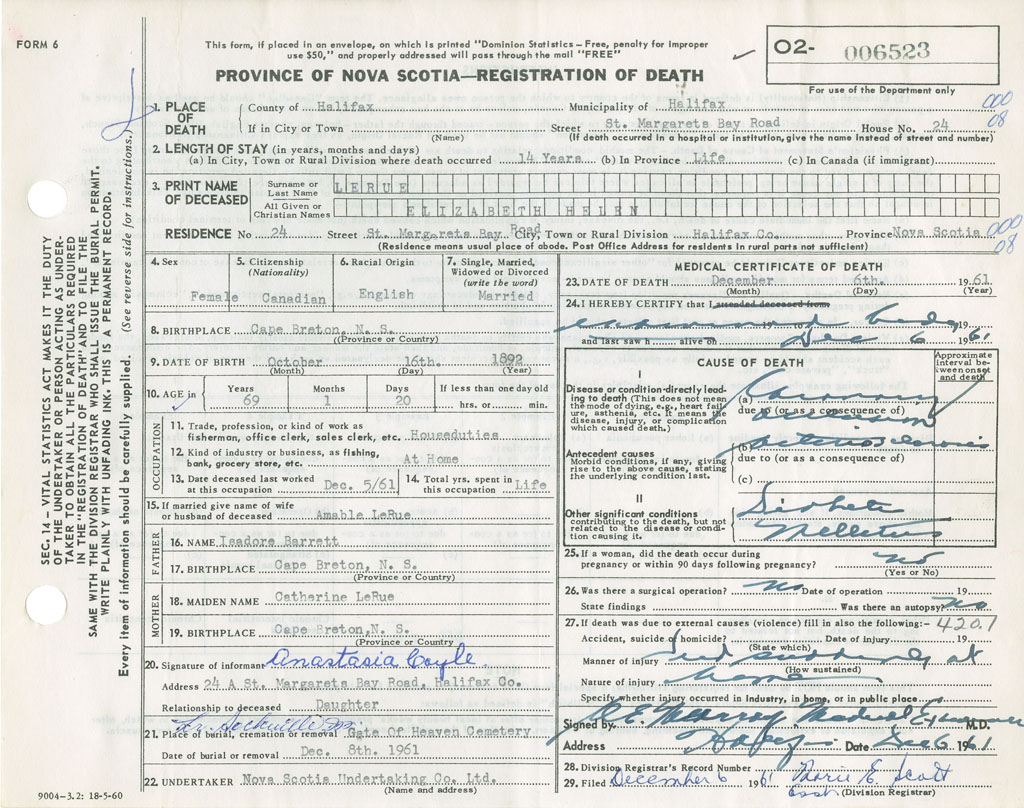 FORM 6
This form, if placed in an envelope, on which is printed "Dominion Statistics – Free, penalty for improper
use $50," and properly addressed will pass through the mail "FREE"
PROVINCE OF NOVA SCOTIA—REGISTRATION OF DEATH
02- 006523
For use of the Department only
1. PLACE OF DEATH
County of Halifax Municipality of Halifax
If in City or Town (Name) Street St. Margarets Bay Road House No. 24
(If death occurred in a hospital or institution, give the name instead of street and number)
000
08
2. LENGTH OF STAY (in years, months and days)
(a) In City, Town or Rural Division where death occurred 14 Years (b) In Province Life (c) In Canada (if immigrant)
3. PRINT NAME OF DECEASED
Surname or Last Name LERUE
All Given or Christian Names ELIZABETH HELEN
RESIDENCE No 24 Street St. Margarets Bay Road City, Town or Rural Division Halifax Co. Province Nova Scotia
(Residence means usual place of abode. Post Office Address for residents in rural parts not sufficient)
000
08
4. Sex Female
5. Citizenship (Nationality) Canadian
6. Racial Origin English
7. Single, Married, Widowed or Divorced (write the word) Married
8. BIRTHPLACE Cape Breton, N. S.
(Province or Country)
9. DATE OF BIRTH October 16th. 1892
(Month) (Day) (Year)
10. AGE in Years 69 Months 1 Days 20 If less than one day old hrs. or min.
OCCUPATION
11. Trade, profession, or kind of work as
fisherman, office clerk, sales clerk, etc. Houseduties
12. Kind of industry or business, as fishing,
bank, grocery store, etc. At Home
13. Date deceased last worked at this occupation Dec. 5/61
14. Total yrs. spent in this occupation Life
15. If married give name of wife
or husband of deceased Amable LeRue
FATHER
16. NAME Isadore Barrett
17. BIRTHPLACE Cape Breton, N. S.
(Province or Country)
MOTHER
18. MAIDEN NAME Catherine LeRue
19. BIRTHPLACE Cape Breton, N. S.
(Province or Country)
20. Signature of informant Anastasia Coyle
Address 24 A St. Margarets Bay Road, Halifax Co.
Relationship to deceased Daughter
Lr. Sackville
21. Place of burial, cremation or removal Gate Of Heaven Cemetery
Date of burial or removal Dec. 8th. 1961
22. UNDERTAKER Nova Scotia Undertaking Co. Ltd.
(Name and address)
MEDICAL CERTIFICATE OF DEATH
23. DATE OF DEATH December 6th. 1961
(Month) (Day) (Year)
24. I HEREBY CERTIFY that I attended deceased from
examined body 19 to 19
and last saw h alive on Dec 6 1961
CAUSE OF DEATH
Approximate interval between onset and death
I
Disease or condition directly leading to death (This does not mean the mode of dying, e.g., heart failure, asthenia, etc. It means the disease, injury, or complication which caused death.)
(a) Coronary occlusion
due to (or as a consequence of)
Antecedent causes
Morbid conditions, if any, giving rise to the above cause, stating the underlying condition last.
(b) arteriosclerosis
due to (or as a consequence of)
(c)
II
Other significant conditions
contributing to the death, but not related to the disease or condition causing it.
Diabetes Mellitus
25. If a woman, did the death occur during
pregnancy or within 90 days following pregnancy? No
(Yes or No)
26. Was there a surgical operation? No Date of operation 19
State findings Was there an autopsy? No
27. If death was due to external causes (violence) fill in also the following:- 420.1
Accident, suicide or homicide? (State which) Date of injury 19
Manner of injury Died suddenly at
(How sustained)
Nature of injury home
Specify whether injury occurred in industry, in home, or in public place
Signed by R.E. Murray Medical Examiner M.D.
Address Halifax Date Dec 6 1961
28. Division Registrar's Record Number
29. Filed December 6 1961 Marie E. Scott
Asst (Division Registrar)
SEC. 14 – VITAL STATISTICS ACT MAKES IT THE DUTY
OF THE UNDERTAKER OR PERSON ACTING AS UNDER-
TAKER TO OBTAIN ALL THE PARTICULARS REQUIRED
IN THE "REGISTRATION OF DEATH" AND TO FILE THE
SAME WITH THE DIVISION REGISTRAR WHO SHALL ISSUE THE BURIAL PERMIT.
WRITE PLAINLY WITH UNFADING INK. THIS IS A PERMANENT RECORD.
Every item of information should be carefully supplied. (See reverse side for instructions.)
9004-3.2: 18-5-60